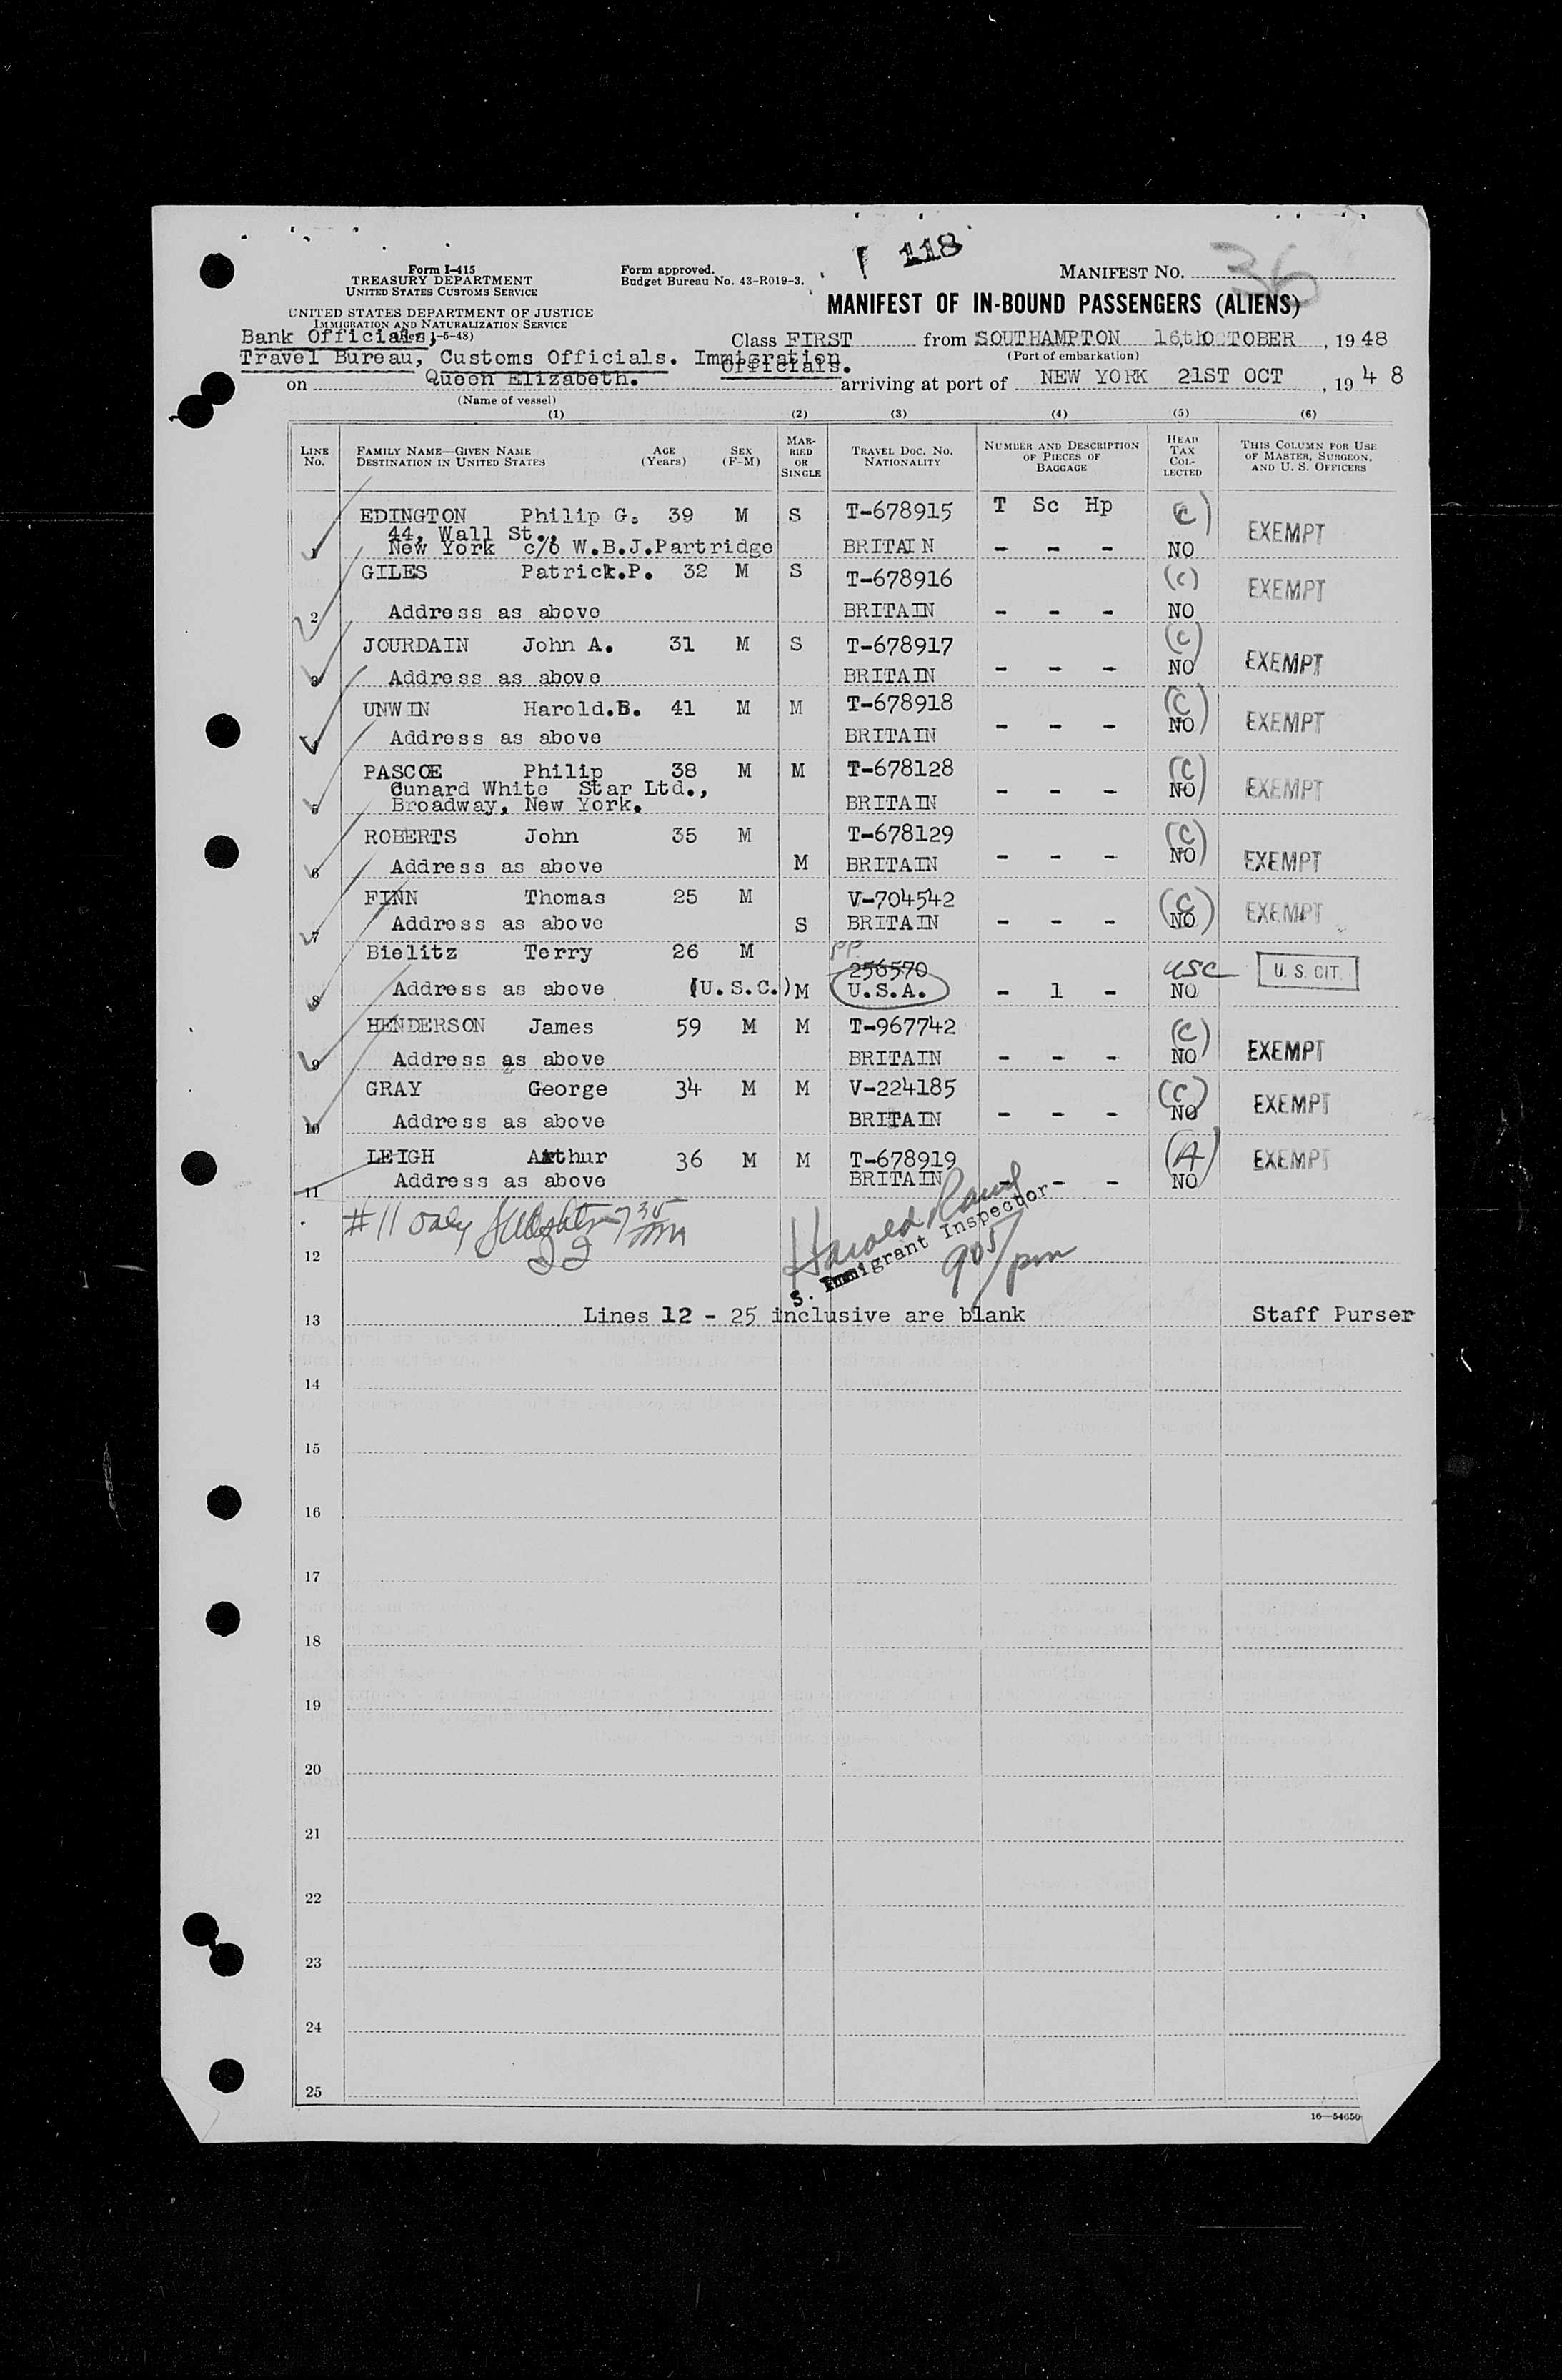 118
36
Form I-415
TREASURY DEPARTMENT
UNITED STATES CUSTOMS SERVICE
Form approved.
Budget Bureau No. 43-R019-3.
MANIFEST NO.
MANIFEST OF IN-BOUND PASSENGERS (ALIENS)
UNITED STATES DEPARTMENT OF JUSTICE
IMMIGRATION AND NATURALIZATION SERVICE
Bank Officials, 1-6-48)
Class FIRST from SOUTHAMPTON 16th OCTOBER, 1948
Travel Bureau, Customs Officials. Immigration Officials.
(Port of embarkation)
on Queen Elizabeth. arriving at port of NEW YORK 21ST OCT, 1948
(Name of vessel)
(1) (2) (3) (4) (5) (6)
LINE No. FAMILY NAME—GIVEN NAME DESTINATION IN UNITED STATES AGE (Years) SEX (F-M) MARRIED OR SINGLE TRAVEL DOC. NO. NATIONALITY NUMBER AND DESCRIPTION OF PIECES OF BAGGAGE HEAD TAX COLLECTED THIS COLUMN FOR USE OF MASTER, SURGEON, AND U. S. OFFICERS
T Sc Hp
EDINGTON Philip G. 39 M S T-678915 (C) EXEMPT
44, Wall St.,
1 New York c/o W.B.J.Partridge BRITAIN - - - NO
GILES Patrick.P. 32 M S T-678916 (C) EXEMPT
2 Address as above BRITAIN - - - NO
JOURDAIN John A. 31 M S T-678917 (C) EXEMPT
3 Address as above BRITAIN - - - NO
UNWIN Harold.B. 41 M M T-678918 (C) EXEMPT
4 Address as above BRITAIN - - - NO
PASCOE Philip 38 M M T-678128 (C) EXEMPT
Cunard White Star Ltd.,
5 Broadway, New York. BRITAIN - - - NO
ROBERTS John 35 M T-678129 (C) EXEMPT
6 Address as above M BRITAIN - - - NO
FINN Thomas 25 M V-704542 (C) EXEMPT
7 Address as above S BRITAIN - - - NO
Bielitz Terry 26 M PP. 256570 USC U. S. CIT.
8 Address as above (U.S.C.) M U.S.A. - 1 - NO
HENDERSON James 59 M M T-967742 (C) EXEMPT
9 Address as above BRITAIN - - - NO
GRAY George 34 M M V-224185 (C) EXEMPT
10 Address as above BRITAIN - - - NO
LEIGH Arthur 36 M M T-678919 (A) EXEMPT
11 Address as above BRITAIN - - - NO
#11 only
Harold
S. Immigrant Inspector
905/pm
12
13 Lines 12 - 25 inclusive are blank Staff Purser
14
15
16
17
18
19
20
21
22
23
24
25
16—54650